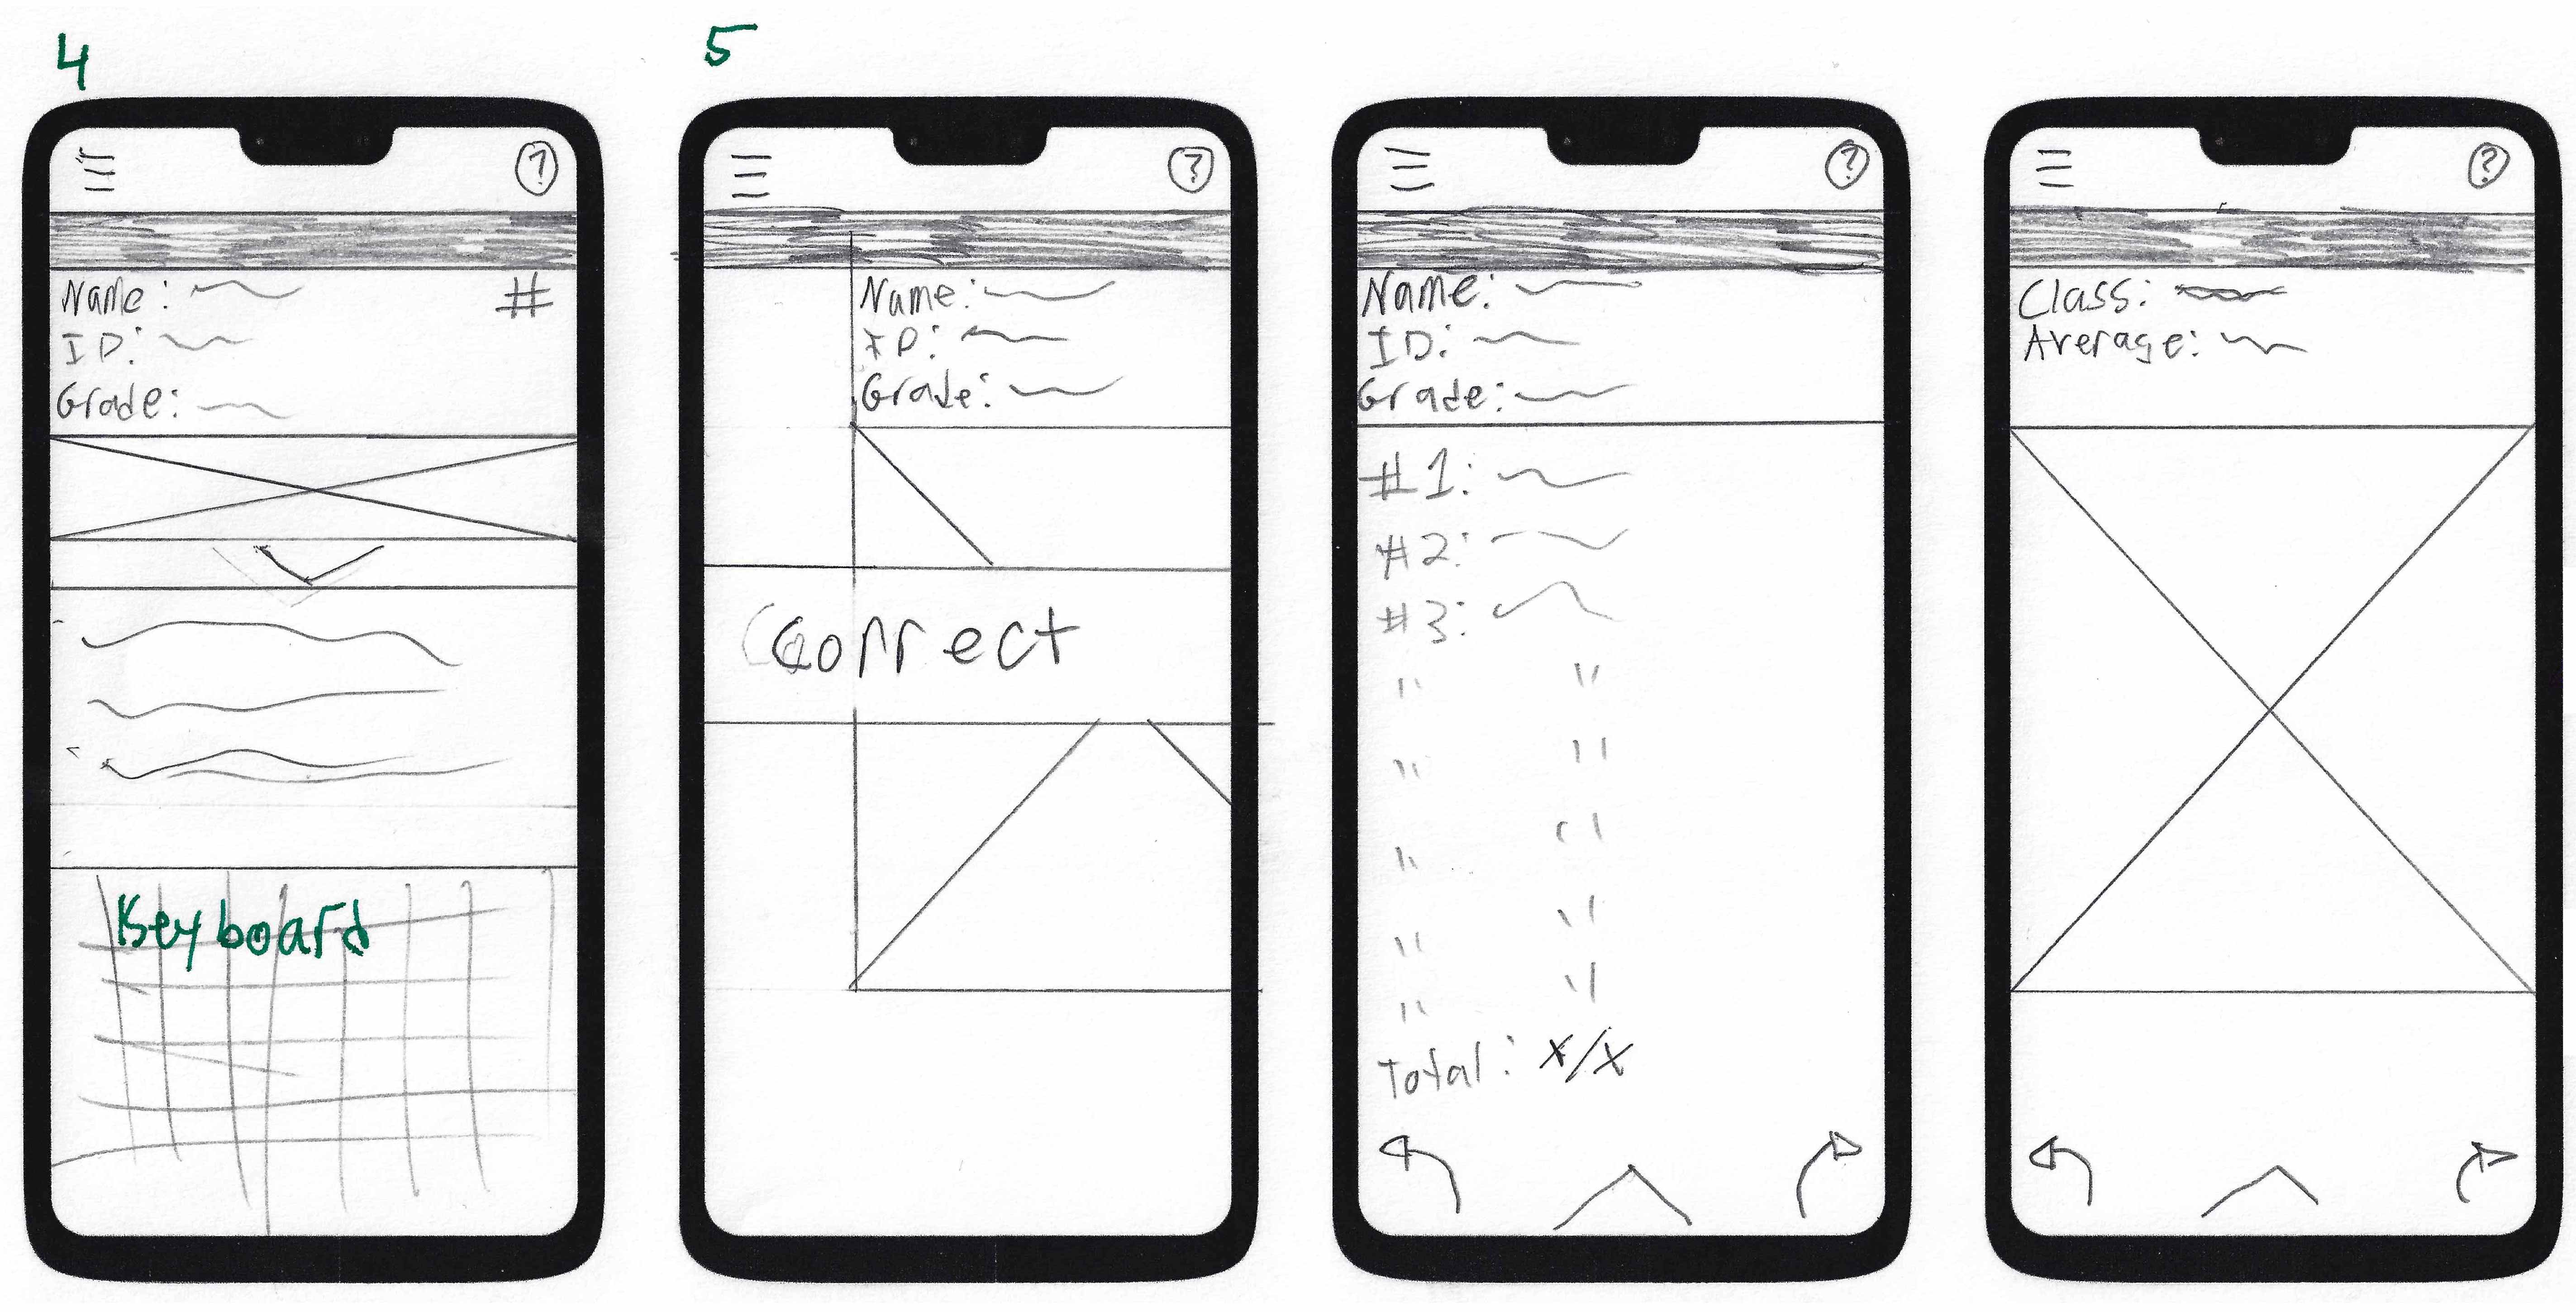 4
?
Name:
#
ID:
Grade:
Keyboard
5
?
Name:
ID:
Grade:
Correct
?
Name:
ID:
Grade:
#1:
#2:
#3:
" "
" "
" "
" "
" "
Total: x/x
?
Class:
Average: